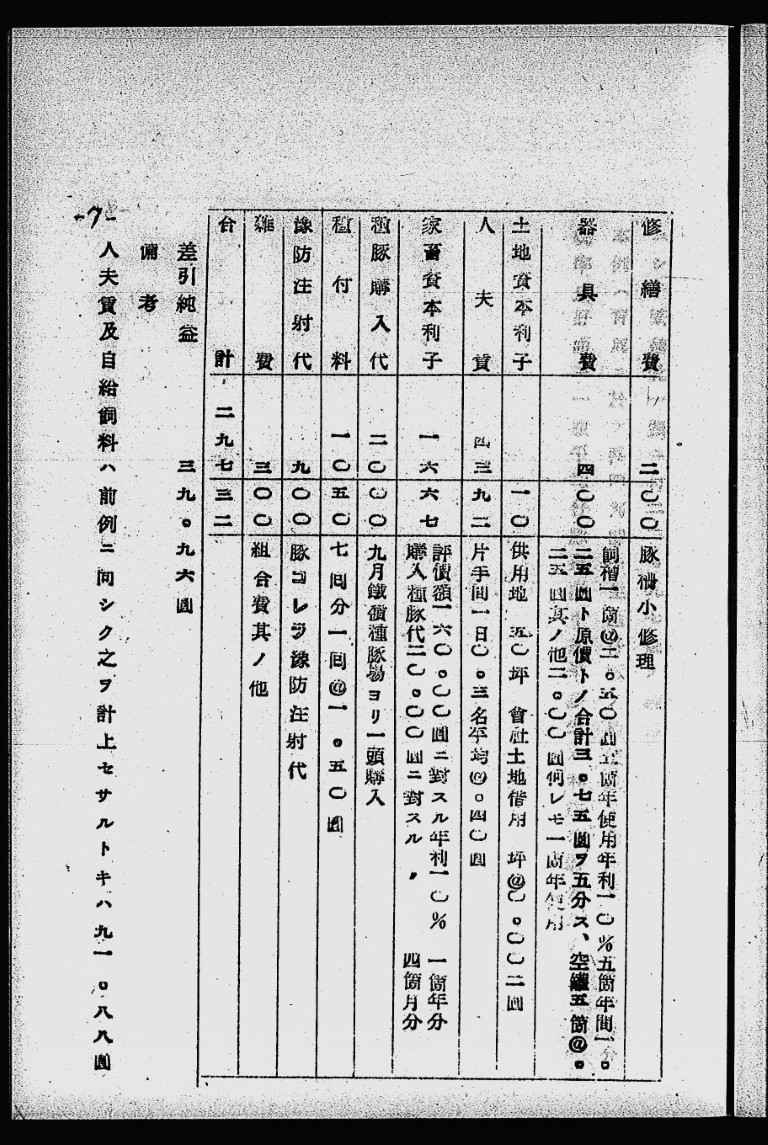 修繕費 二〇〇 豚柵小修理
器具費 四〇〇 飼槽一箇@二。五〇圓五箇年使用年利一〇%五箇年間一。
二五圓ト原價トノ合計三。七五圓ヲ五分ス、空罐五箇@。
二五圓其ノ他二。〇〇圓何レモ一箇年使用
土地資本利子 一〇 供用地 五〇坪 會社土地借用 坪@〇。〇〇二圓
人夫賃 四三九二 片手間一日〇。三名年均@。四〇圓
家畜資本利子 一六六七 評價額一六〇。〇〇圓ニ對スル年利一〇% 一箇年分
購入種豚代二〇。〇〇圓ニ對スル 〃 四箇月分
種豚購入代 二〇〇〇 九月鐵嶺種豚場ヨリ一頭購入
種付料 一〇五〇 七回分一回@一。五〇圓
豫防注射代 九〇〇 豚コレラ豫防注射代
雜費 三〇〇 組合費其ノ他
合計 二九七三二
差引純益 三九。九六圓
備考
人夫賃及自給飼料ハ前例ニ同シク之ヲ計上セサルトキハ九一。八八圓
-7-